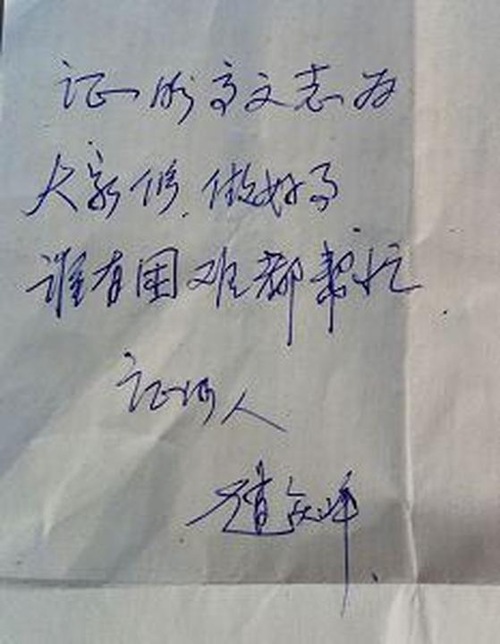 证明高文志为
大家修.做好事
谁有困难都帮忙.
证明人